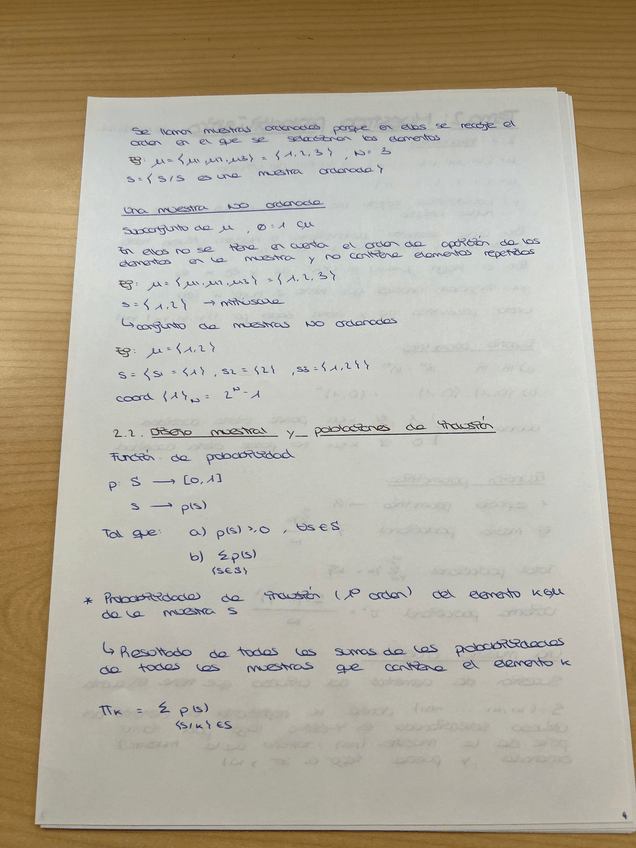 Se llaman muestras ordenadas porque en ellas se recoge el
orden en el que se seleccionan los elementos
Eg: μ = {μ1, μ2, μ3} = {1, 2, 3} , N = 3
S = { s / s es una muestra ordenada }
Una muestra NO ordenada
Subconjunto de μ ,
En ellas no se tiene en cuenta el orden de aparición de los
elementos en la muestra y no contiene elementos repetidos
Eg: μ = {μ1, μ2, μ3} = {1, 2, 3}
s = {1, 2} → minúscula
↳ conjunto de muestras NO ordenadas
Eg: μ = {1, 2}
S = { s1 = {1} , s2 = {2} , s3 = {1, 2} }
2^N - 1
2.2. Diseño muestral y poblaciones de inclusión
Función de probabilidad
p: S → [0, 1]
s → p(s)
Tal que: a) p(s) ≥ 0 , ∀s ∈ S
b) Σ p(s)
{s∈S}
* Probabilidades de inclusión (1º orden) del elemento k∈μ
de la muestra s
↳ Resultado de todas las sumas de las probabilidades
de todas las muestras que contiene el elemento k
πk = Σ p(s)
{s/k} ∈ S